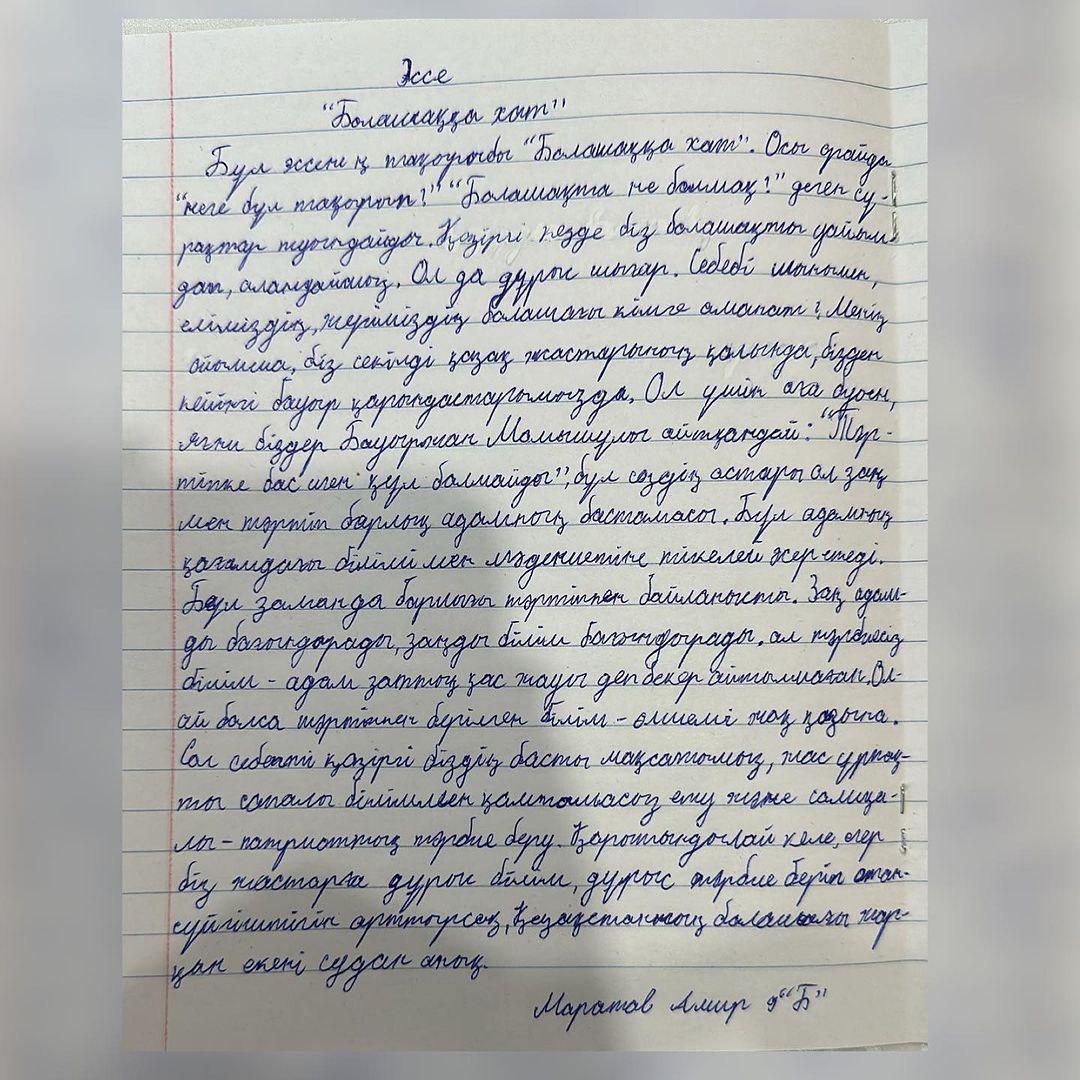 Эссе
"Болашаққа хат"
Бұл эссенің тақырыбы "Болашаққа хат". Осы орайда
"неге бұл тақырып?" "Болашақта не болмақ?" деген сұ-
рақтар туындайды. Қазіргі кезде біз болашақты уайым
дап, алаңдаймыз. Ол да дұрыс шығар. Себебі шынымен,
еліміздің, жеріміздің болашағы кімге аманат? Менің
ойымша, біз секілді қазақ жастарының қолында, бізден
кейінгі бауыр қарындастарымызда. Ол үшін аға буын,
яғни біздер Бауыржан Момышұлы айтқандай: "Тәр-
тіпке бас иген құл болмайды", бұл сөздің астары ол заң
мен тәртіп барлық адамның бастамасы. Бұл адамның
қоғамдағы білімі мен мәдениетіне тікелей әсер етеді.
Бұл заманда барлығы тәртіппен байланысты. Заң адам-
ды бағындырады, заңды білім бағындырады. ал тәрбиесіз
білім - адам заттың қас жауы деп бекер айтылмаған. Ол-
ай болса тәртіппен берілген білім - өлшемі жоқ қазына.
Сол себепті қазіргі біздің басты мақсатымыз, жас ұрпақ-
ты сапалы біліммен қамтамасыз ету және салиқа-
лы - патриоттық тәрбие беру. Қорытындылай келе, егер
біз жастарға дұрыс білім, дұрыс тәрбие беріп отан-
сүйгіштігін арттырсақ, Қазақстанның болашағы жар-
қын екені судан анық.
Маратов Амир 9 "Б"